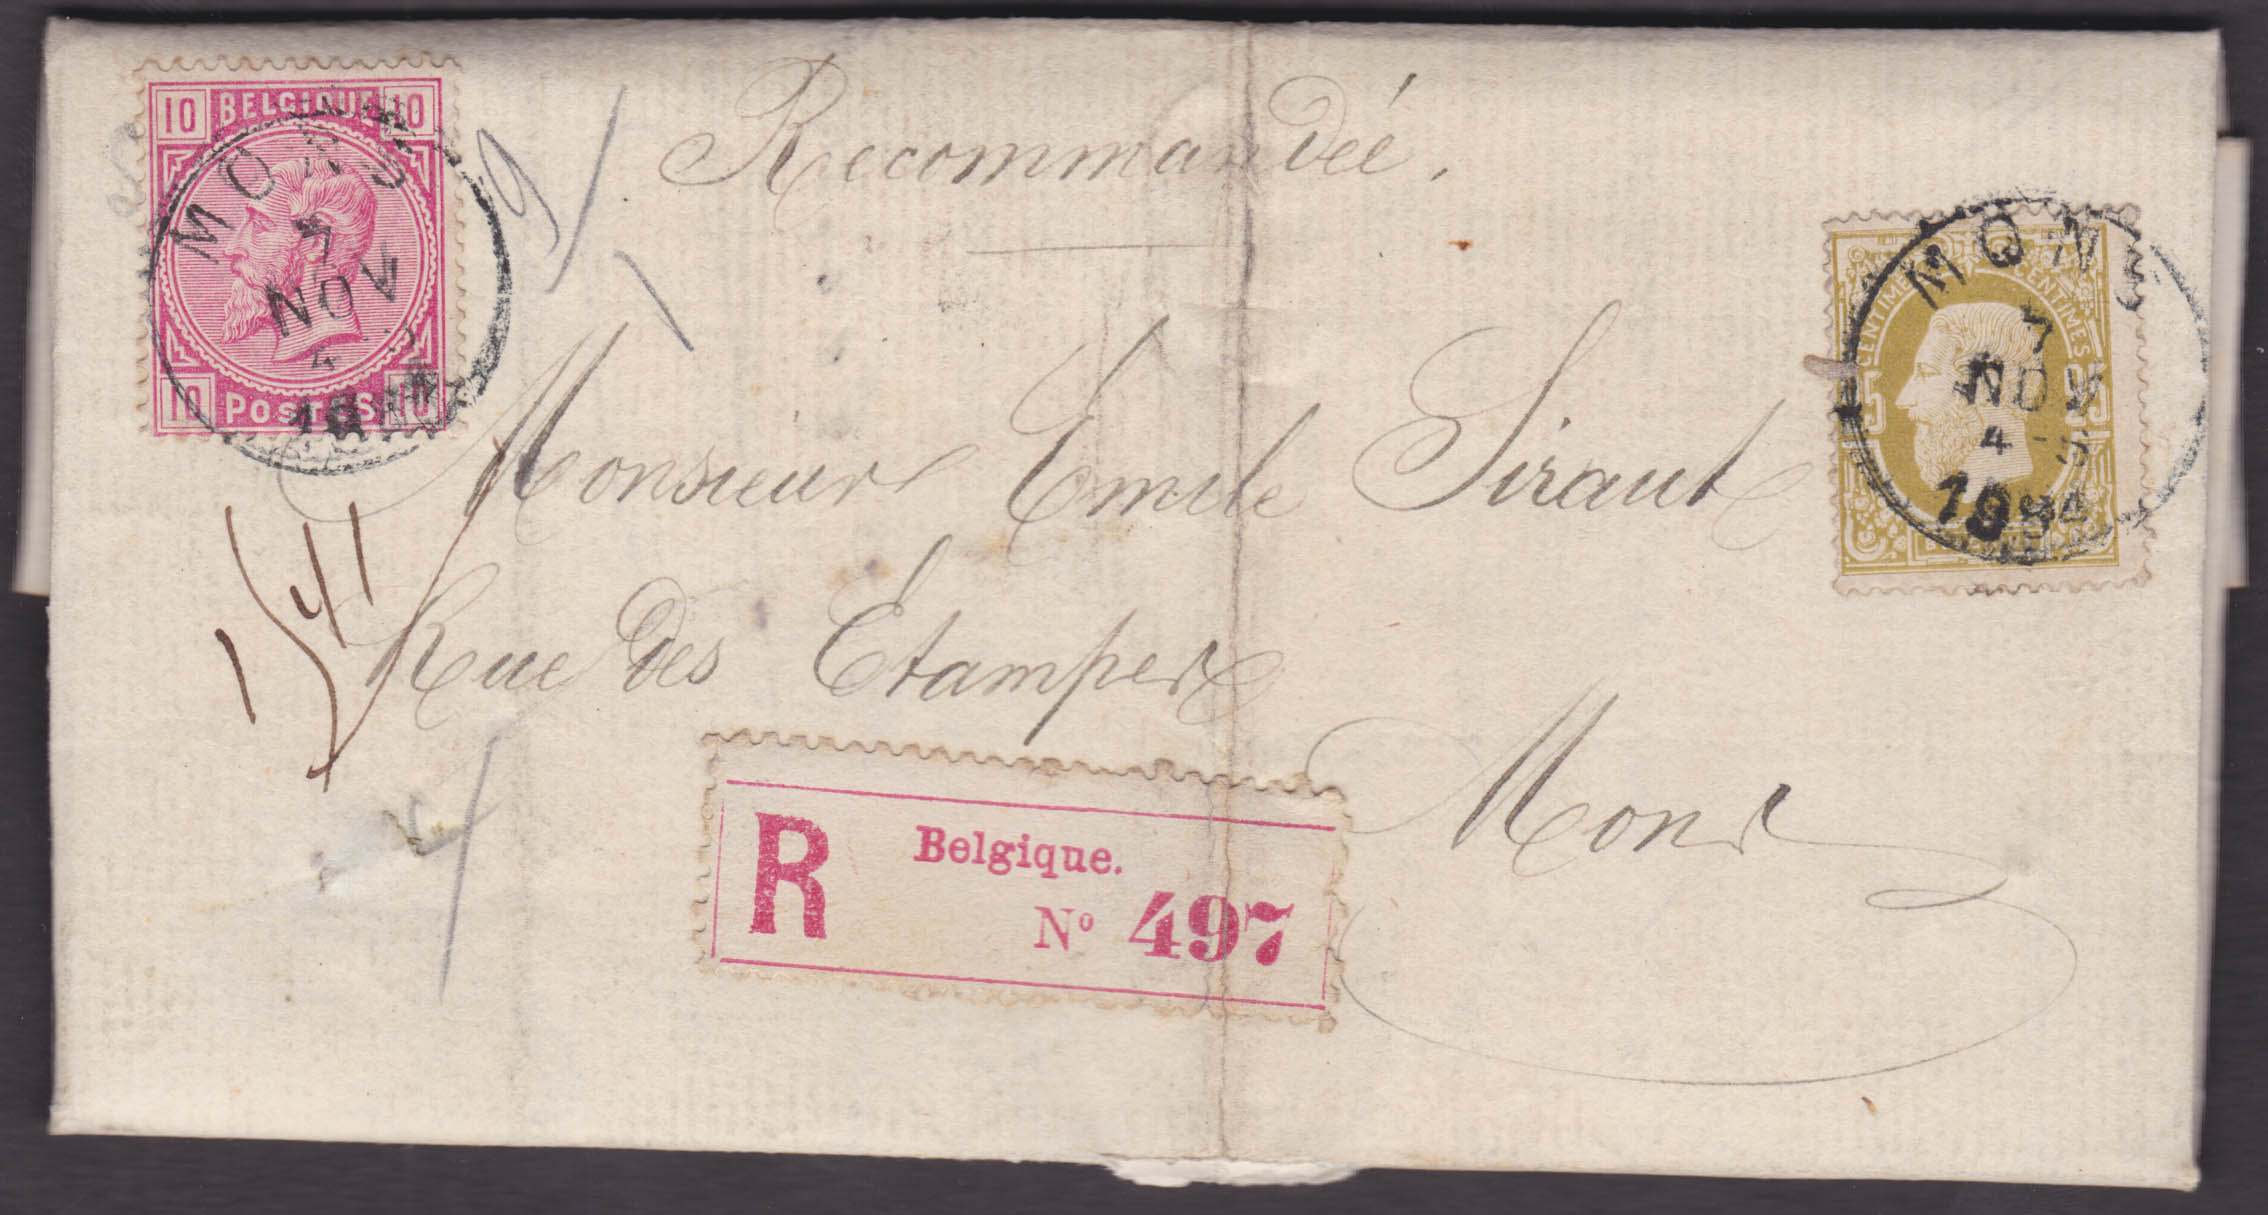 10 BELGIQUE 10
10 POSTES 10
MONS
7
NOV
4-5
Recommandée.
CENTIMES 25 CENTIMES 25
MONS
7
NOV
4-5
1884
Monsieur Emile Siraut
Rue des Etampes
Mons
R Belgique.
Nº 497